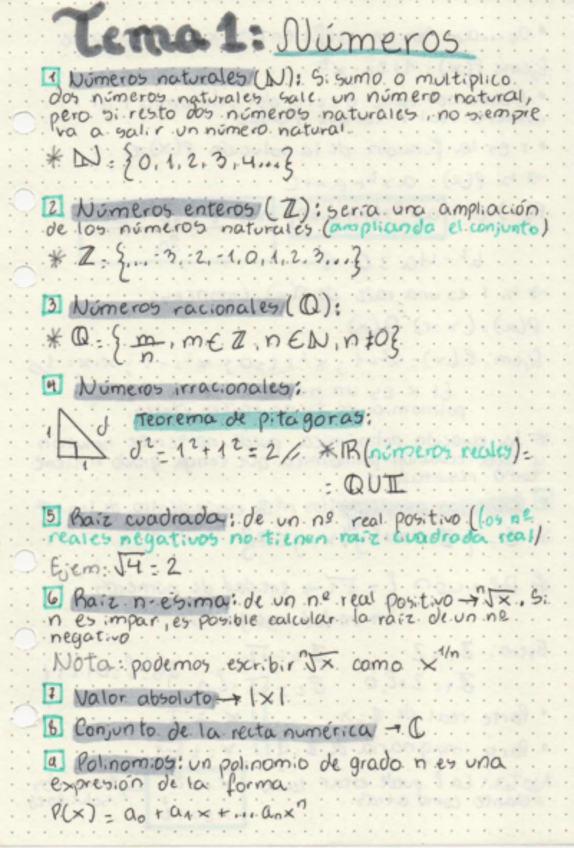 Tema 1: Números
1 Números naturales (ℕ): Si sumo o multiplico
dos números naturales sale un número natural,
pero si resto dos números naturales, no siempre
va a salir un número natural.
* ℕ = {0, 1, 2, 3, 4...}
2 Números enteros (ℤ): sería una ampliación
de los números naturales (ampliando el conjunto)
* ℤ = {... -3, -2, -1, 0, 1, 2, 3, ...}
3 Números racionales (ℚ):
* ℚ = { m/n , m ∈ ℤ, n ∈ ℕ, n ≠ 0}
4 Números irracionales:
Teorema de pitágoras:
1 d
1
d² = 1² + 1² = 2 // * ℝ (números reales) =
= ℚ U 𝕀
5 Raíz cuadrada: de un nº real positivo (los nº
reales negativos no tienen raíz cuadrada real)
Ejem: √4 = 2
6 Raíz n-ésima: de un nº real positivo → ⁿ√x. Si
n es impar, es posible calcular la raíz de un nº
negativo
Nota: podemos escribir ⁿ√x como x^1/n
7 Valor absoluto → |x|
8 Conjunto de la recta numérica → ℂ
a Polinomios: un polinomio de grado n es una
expresión de la forma
P(x) = a₀ + a₁x + ... aₙxⁿ